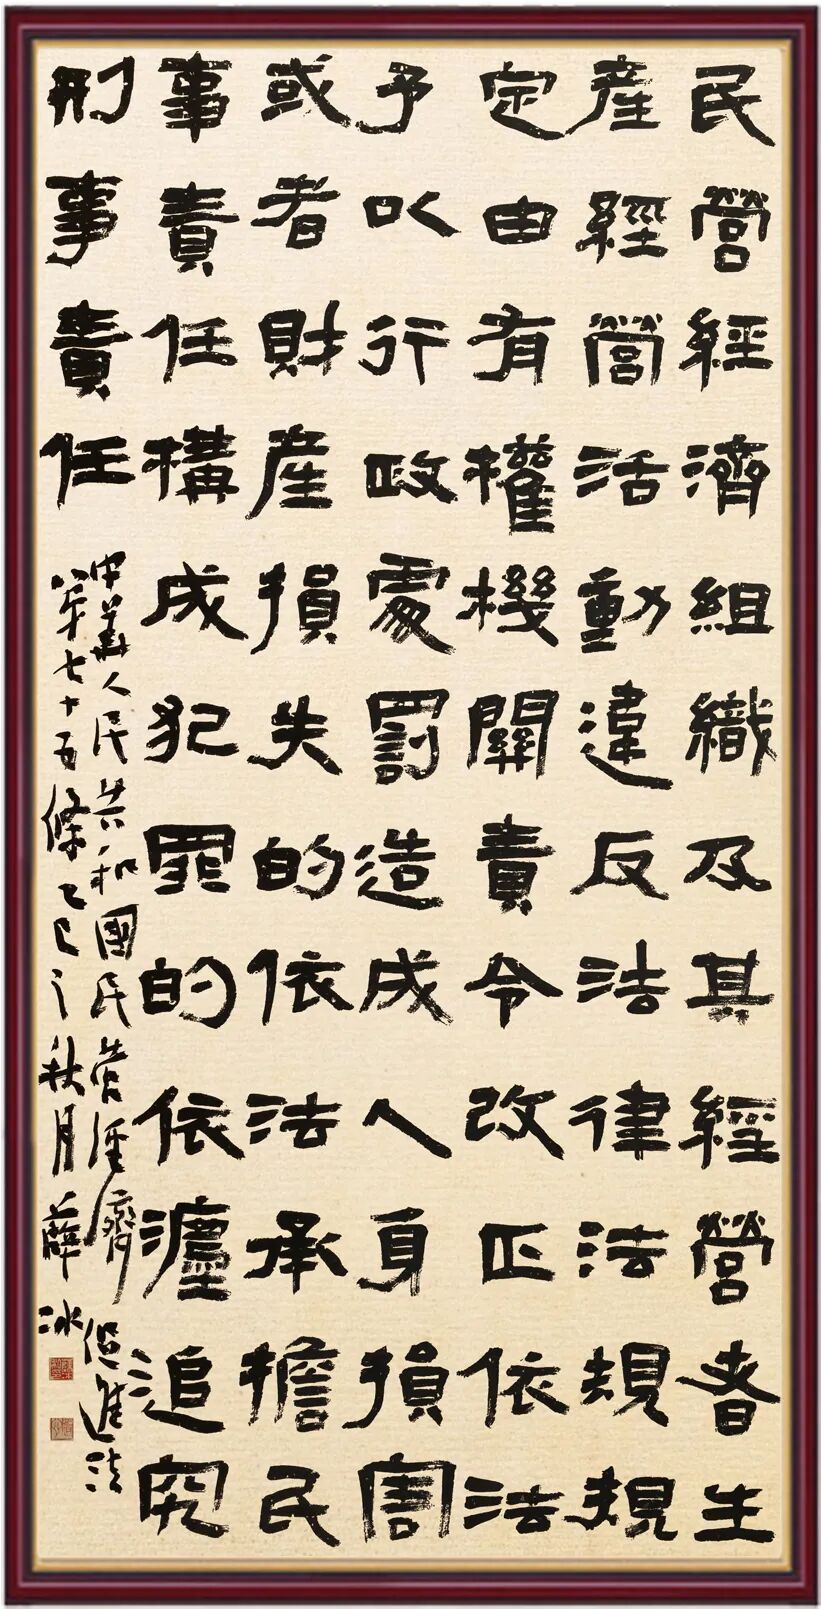 民營經濟組織及其經營者生
產經營活動違反法律法規規
定由有權機關責令改正依法
予以行政處罰造成人身損害
或者財產損失的依法承擔民
事責任構成犯罪的依灋追究
刑事責任
中華人民共和國民營經濟促進法
第七十五條乙巳之秋月薛冰